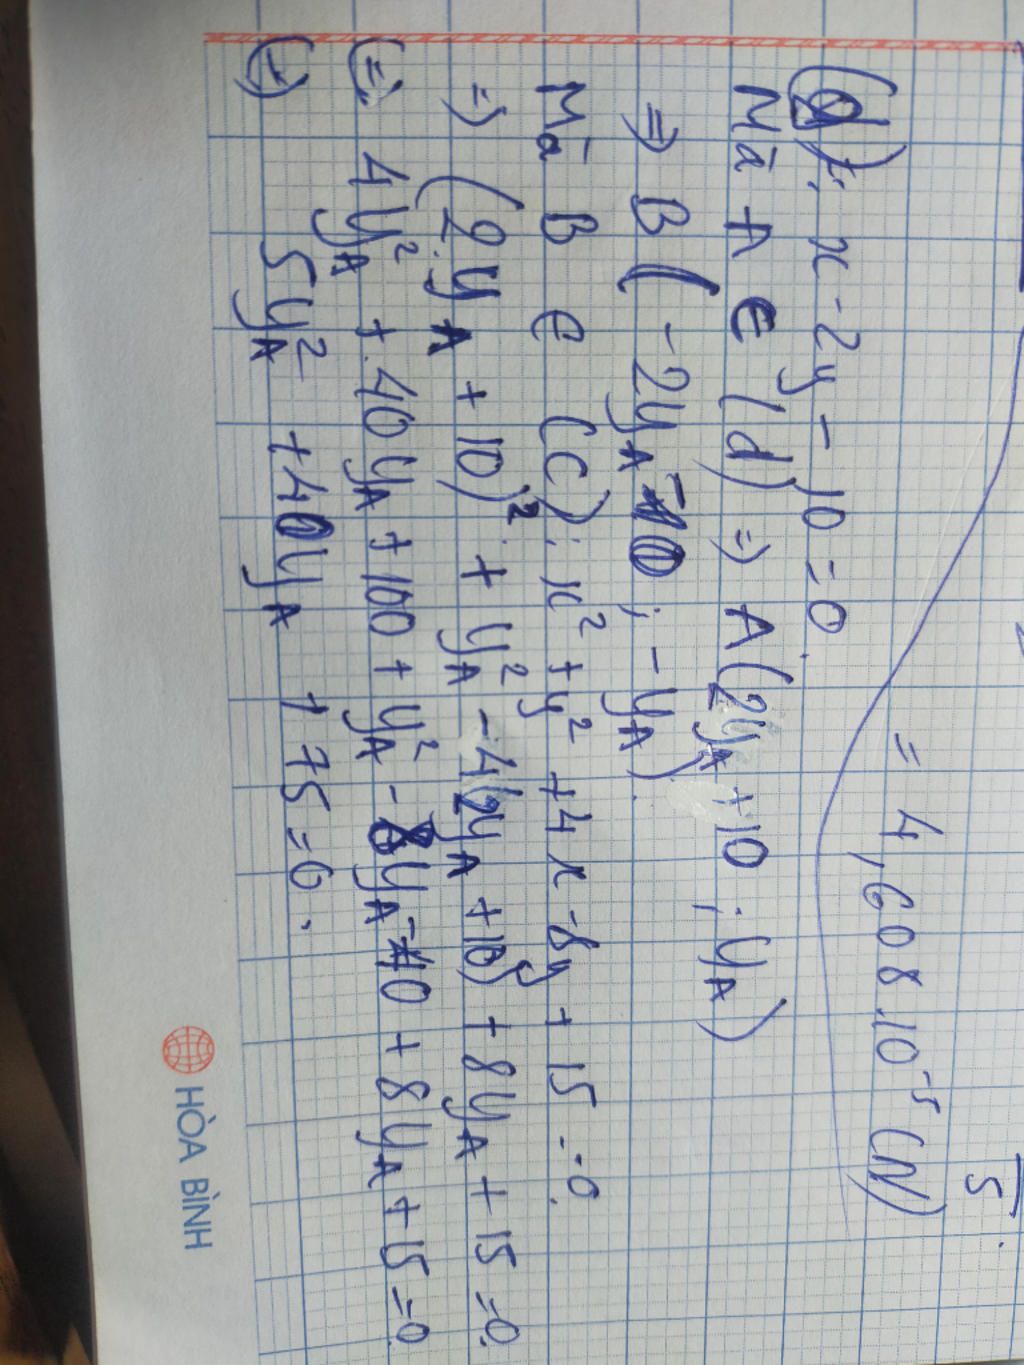 5.
= 4,608.10⁻⁵ (N)
(d): x - 2y - 10 = 0.
Mà A ∈ (d) => A(2y_A + 10 ; y_A)
=> B(-2y_A - 10 ; -y_A).
Mà B ∈ (C): x² + y² + 4x - 8y + 15 = 0.
=> (2y_A + 10)² + y_A² - 4(2y_A + 10) + 8y_A + 15 = 0.
(=) 4y_A² + 40y_A + 100 + y_A² - 8y_A - 40 + 8y_A + 15 = 0.
(=) 5y_A² + 40y_A + 75 = 0.
HÒA BÌNH